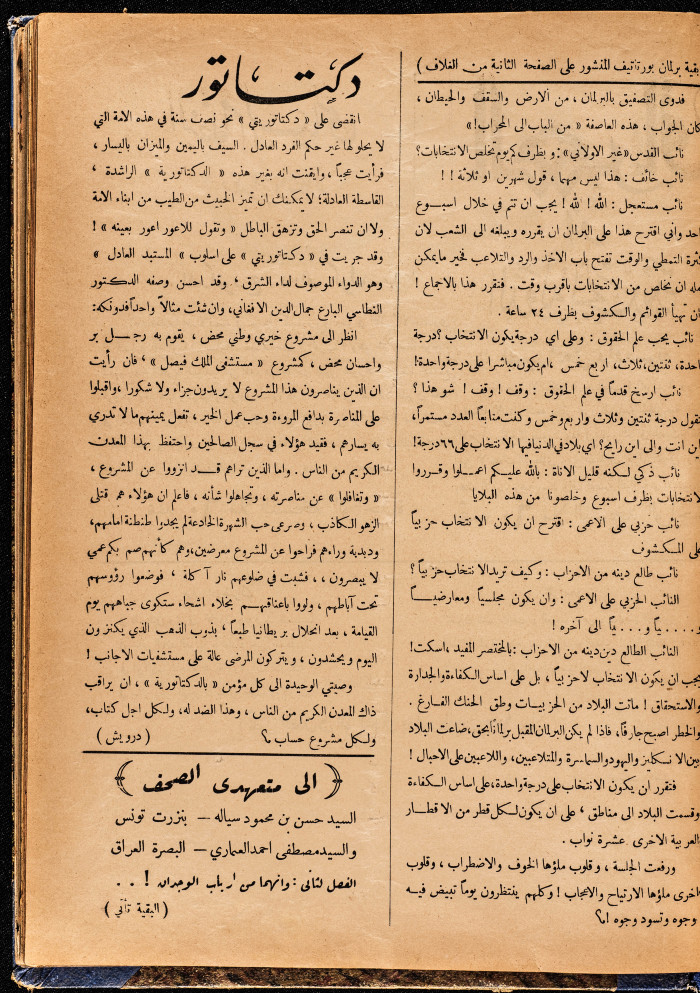 بقية برلمان بورتاتيف المنشور على الصفحة الثانية من الغلاف )
فدوى التصفيق بالبرلمان ، من الأرض والسقف والحيطان ،
كان الجواب ، هذه العاصفة « من الباب الى المحراب!»
نائب القدس «غير الاولاني» : وبظرف كم يوم تخلص الانتخابات؟
نائب خائف : هذا ليس مهما ، قول شهرين او ثلاثة ! !
نائب مستعجل : الله ! لله ! يجب ان تتم في خلال اسبوع
واحد وأني اقترح هذا على البرلمان ان يقرره ويبلغه الى الشعب لان
كثرة التمطي والوقت تفتح باب الاخذ والرد والتلاعب فخير مايمكن
ان نخلص من الانتخابات باقرب وقت . فتقرر هذا بالاجماع !
ان تهيأ القوائم والكشوف بظرف ٢٤ ساعة .
نائب يجب علم الحقوق : وعلى اي درجة يكون الانتخاب ؟ درجة
واحدة، ثنتين، ثلاث، اربع خمس ، ام يكون مباشرا على درجة واحدة!
نائب ارسخ قدماً في علم الحقوق : وقف ! وقف ! شو هذا ؟
تقول درجة ثنتين وثلاث واربع وخمس وكنت متابعا العدد مستمراً،
اين انت والى اين رايح؟ اي بلاد في الدنيا فيها الانتخاب على ٦٦ درجة!
نائب ذكي لكنه قليل الاناة : بالله عليكم اعملوا وقرروا
الانتخابات بظرف اسبوع وخلصونا من هذه البلايا
نائب حزبي على الاعمى : اقترح ان يكون الانتخاب حزبياً
على المكشوف
نائب طالع دينه من الاحزاب : وكيف تريد الانتخاب حزبياً ؟
النائب الحزبي على الاعمى : وان يكون مجلسياً ومعارضياً
و....ياً و...ياً الى آخره !
النائب الطالع دين دينه من الاحزاب : بالمختصر المفيد ،اسكت!
يجب ان يكون الانتخاب لا حزبياً ، بل على اساس الكفاءة والجدارة
والاستحقاق ! ماتت البلاد من الحزبيات وطق الحنك الفارغ .
والخطر اصبح جارفاً، فاذا لم يكن البرلمان المقبل برلماناً بحق، ضاعت البلاد
بين الانكليز واليهود والسماسرة والمتلاعبين، واللاعبين على الاحبال !
فتقرر ان يكون الانتخاب على درجة واحدة، على اساس الكفاءة
وقسمت البلاد الى مناطق ، على ان يكون لكل قطر من الاقطار
العربية الاخرى عشرة نواب .
ورفعت الجلسة ، وقلوب ملؤها الخوف والاضطراب ، وقلوب
اخرى ملؤها الارتياح والاعجاب ! وكلهم ينتظرون يوماً تبيض فيه
وجوه وتسود وجوه اه؟
دكتاتور
انقضى على « دكتاتوريتي » نحو نصف سنة في هذه الامة التي
لا يحلو لها غير حكم الفرد العادل . السيف باليمين والميزان باليسار ،
فرأيت عجباً ، وايقنت انه بغير هذه « الدكتاتورية » الراشدة ،
القاسطة العادلة؛ لا يمكنك ان تميز الخبيث من الطيب من ابناء الامة
ولا ان تنصر الحق وتزهق الباطل « وتقول للاعور اعور بعينه » !
وقد جريت في « دكتاتوريتي » على اسلوب « المستبد العادل »
وهو الدواء الموصوف لداء الشرق ، وقد احسن وصفه الدكتور
النطاسي البارع جمال الدين الافغاني، وان شئت مثالاً واحداً فدونكه:
انظر الى مشروع خيري وطني محض ، يقوم به رجل بر
واحسان محض ، كمشروع « مستشفى الملك فيصل » ، فان رأيت
ان الذين يناصرون هذا المشروع لا يريدون جزاء ولا شكورا ، واقبلوا
على المناصرة بدافع المروءة وحب عمل الخير ، تفعل يمينهم ما لا تدري
به يسارهم ، فقيد هؤلاء في سجل الصالحين واحتفظ بهذا المعدن
الكريم من الناس . واما الذين تراهم قد انزووا عن المشروع ،
« وتغافلوا » عن مناصرته ، وتجاهلوا شأنه ، فاعلم ان هؤلاء هم قتلى
الزهو الكاذب ، وصرعى حب الشهرة الخادعة لم يجدوا طنطنة امامهم،
ودبدبة وراءهم فراحوا عن المشروع معرضين، وهم كأنهم صم بكم عمي
لا يبصرون ، ، فشبت في ضلوعهم نار آكلة ، فوضعوا رؤوسهم
تحت آباطهم ، ولووا باعناقهم بخلاء اشحاء ستكوى جباههم يوم
القيامة ، بعد انحلال بريطانيا طبعاً ، بذوب الذهب الذي يكنزون
اليوم ويحشدون ، ويتركون المرضى عالة على مستشفيات الاجانب !
وصيتي الوحيدة الى كل مؤمن « بالدكتاتورية » ، ان يراقب
ذاك المعدن الكريم من الناس ، وهذا الضد له، ولكل اجل كتاب،
ولكل مشروع حساب م؟ ( درويش )
( الى متعهدي الصحف )
السيد حسن بن محمود سياله — بنزرت تونس
والسيد مصطفى احمد العماري — البصرة العراق
الفصل لثاني : وانهما من ارباب الوجدان ! . .
( البقية تأتي )